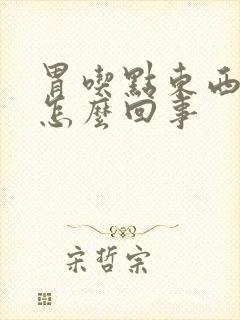 胃喫點東西
怎麼回事
宋哲宗